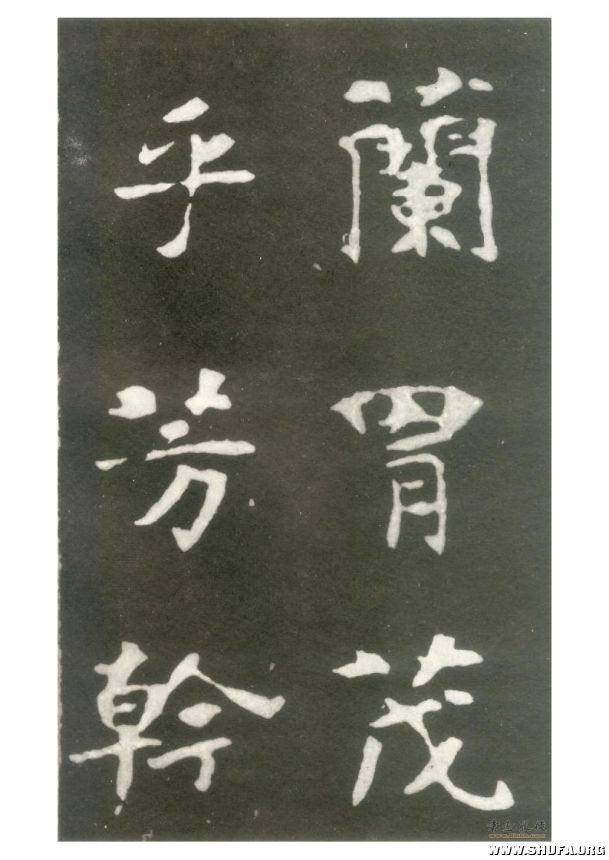 蘭胄茂
乎芳幹
WWW.SHUFA.ORG